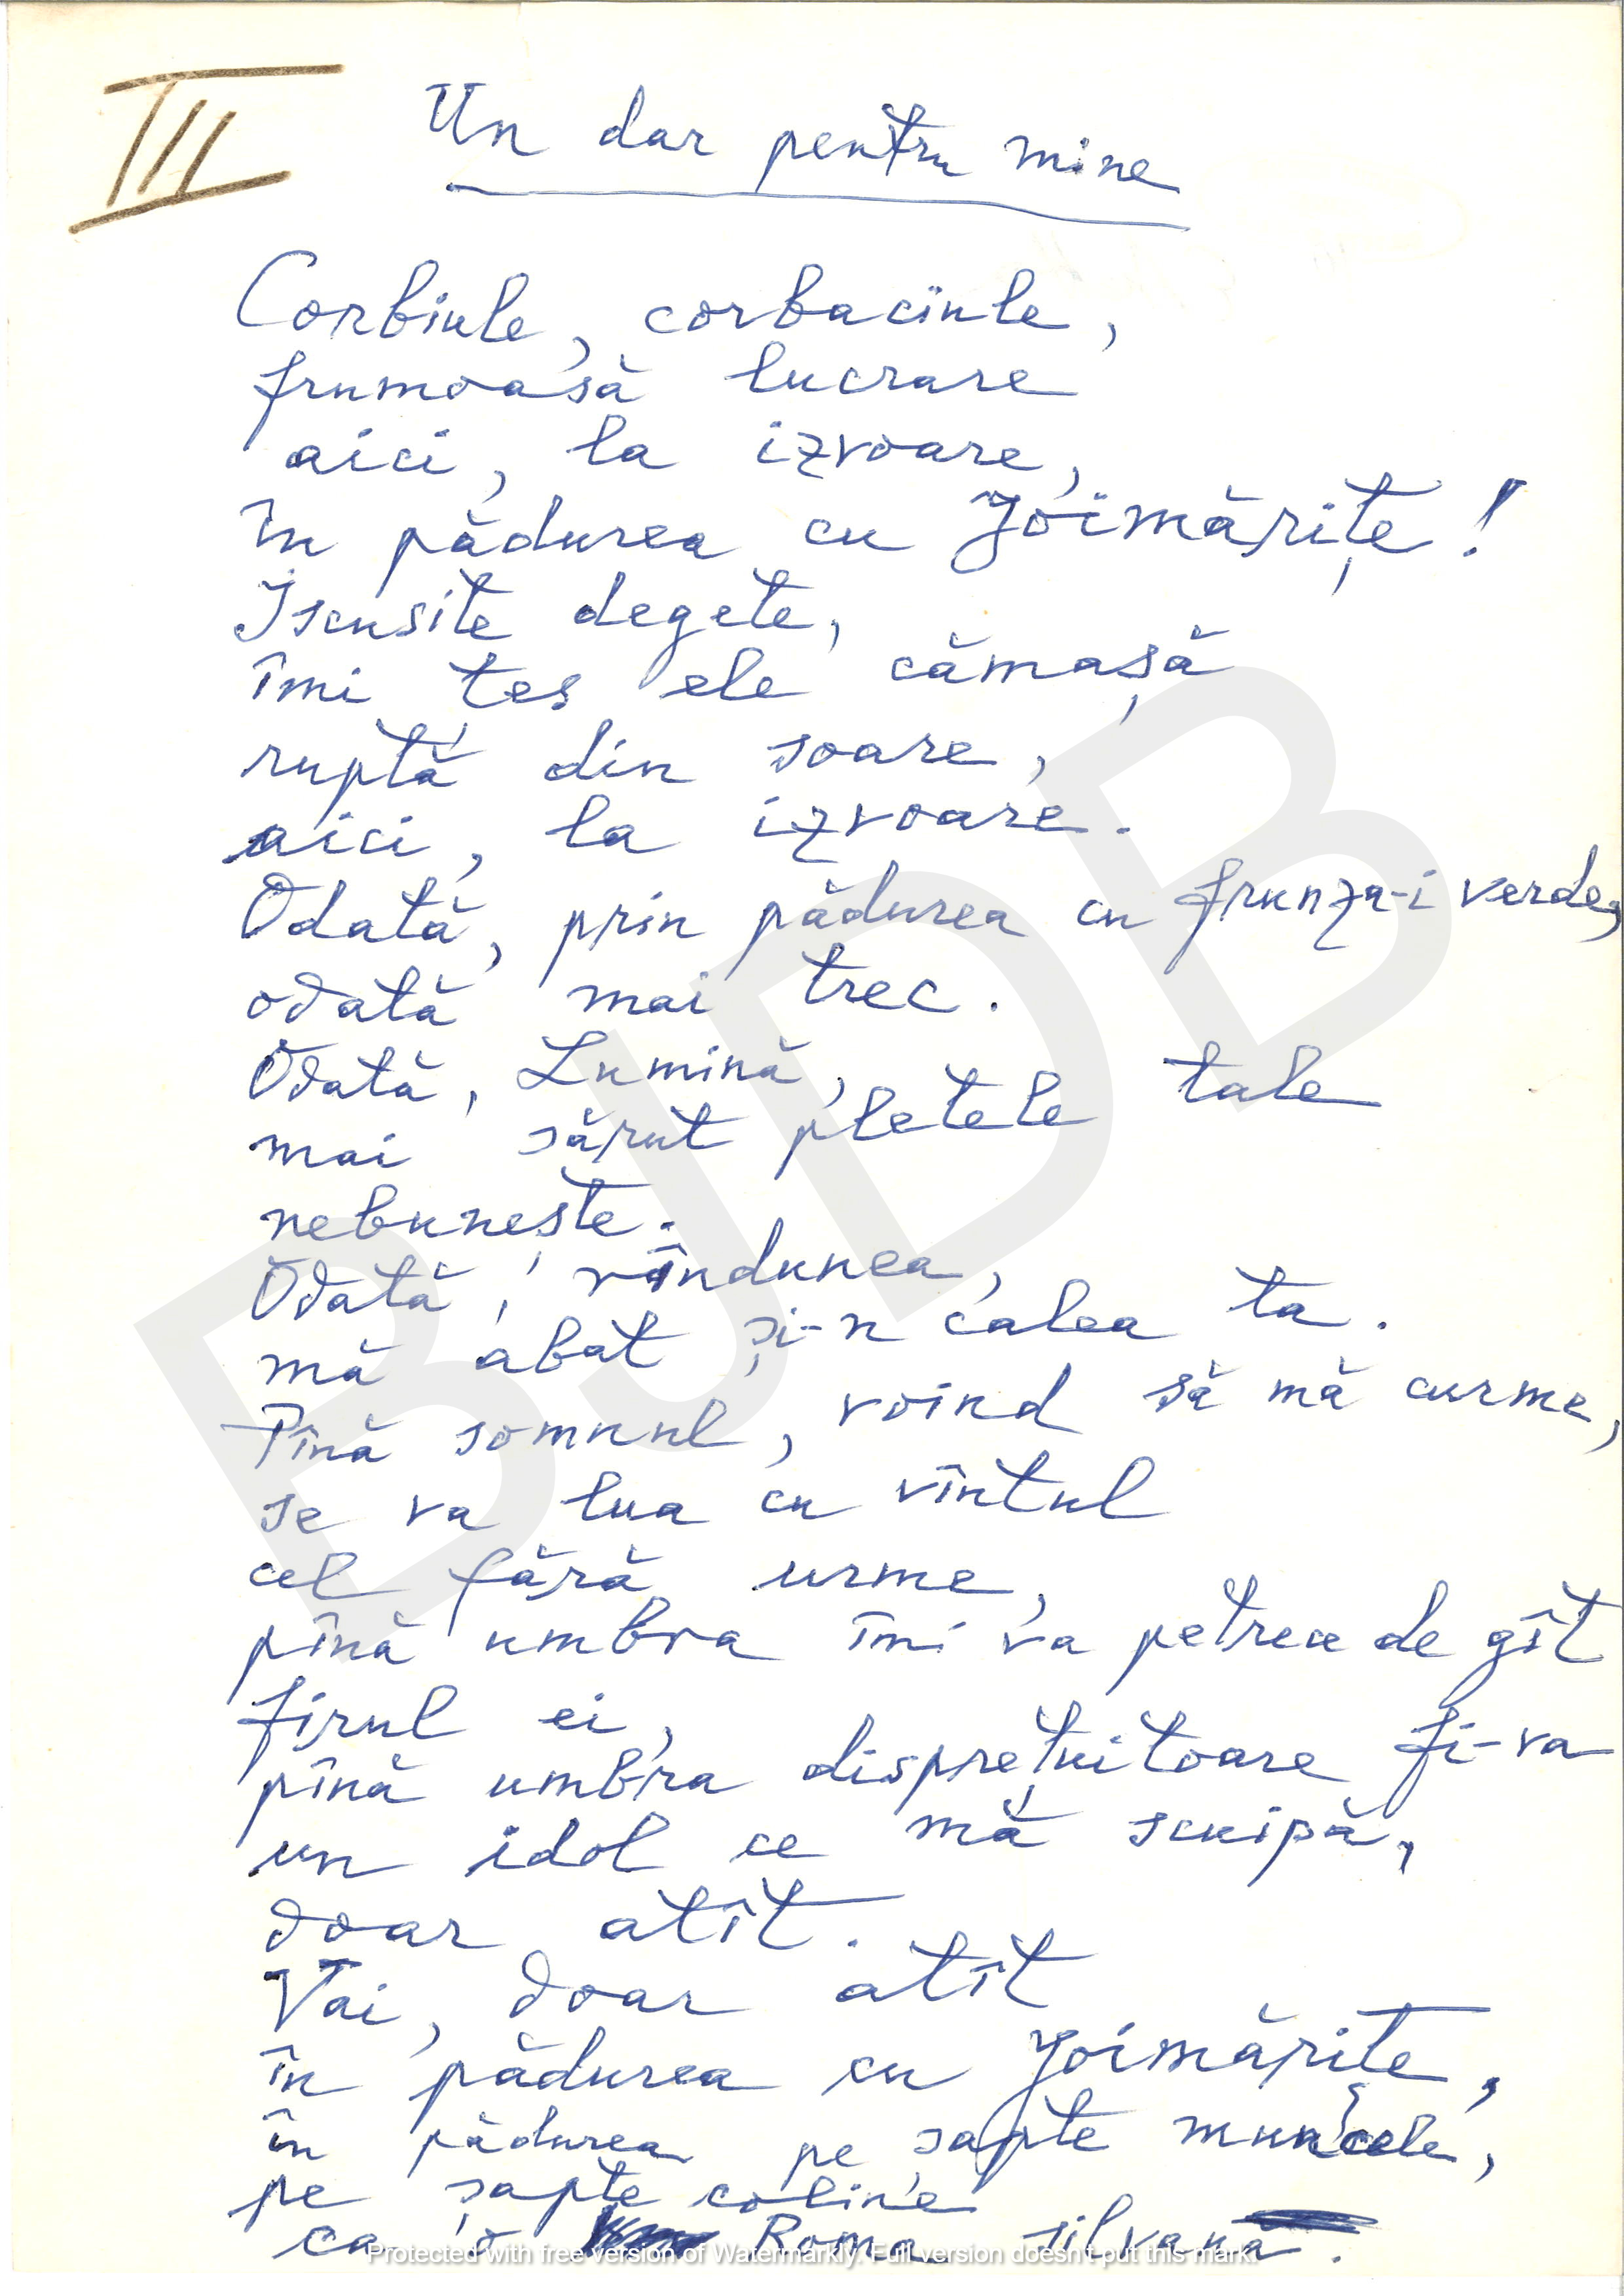 III
Un dar pentru mine
Corbiule, corbaciule,
frumoasă lucrare
aici, la izvoare,
în pădurea cu Joimărițe!
Iscusite degete,
îmi țes ele cămașă
ruptă din soare,
aici, la izvoare.
Odată, prin pădurea cu frunza-i verde,
odată mai trec.
Odată, Lumină,
mai sărut pletele tale
nebunește.
Odată, rîndunea,
mă abat și-n calea ta.
Pînă somnul, voind să mă curme,
se va lua cu vîntul
cel fără urme,
pînă umbra îmi va petrece de gît
firul ei,
pînă umbra disprețuitoare fi-va
un idol ce mă scuipă,
doar atît.
Vai, doar atît
în pădurea cu Joimărițe,
în pădurea pe șapte muncele,
pe șapte coline
ca o Roma silvană.
BJDB
Protected with free version of Watermarkly. Full version doesn't put this mark.